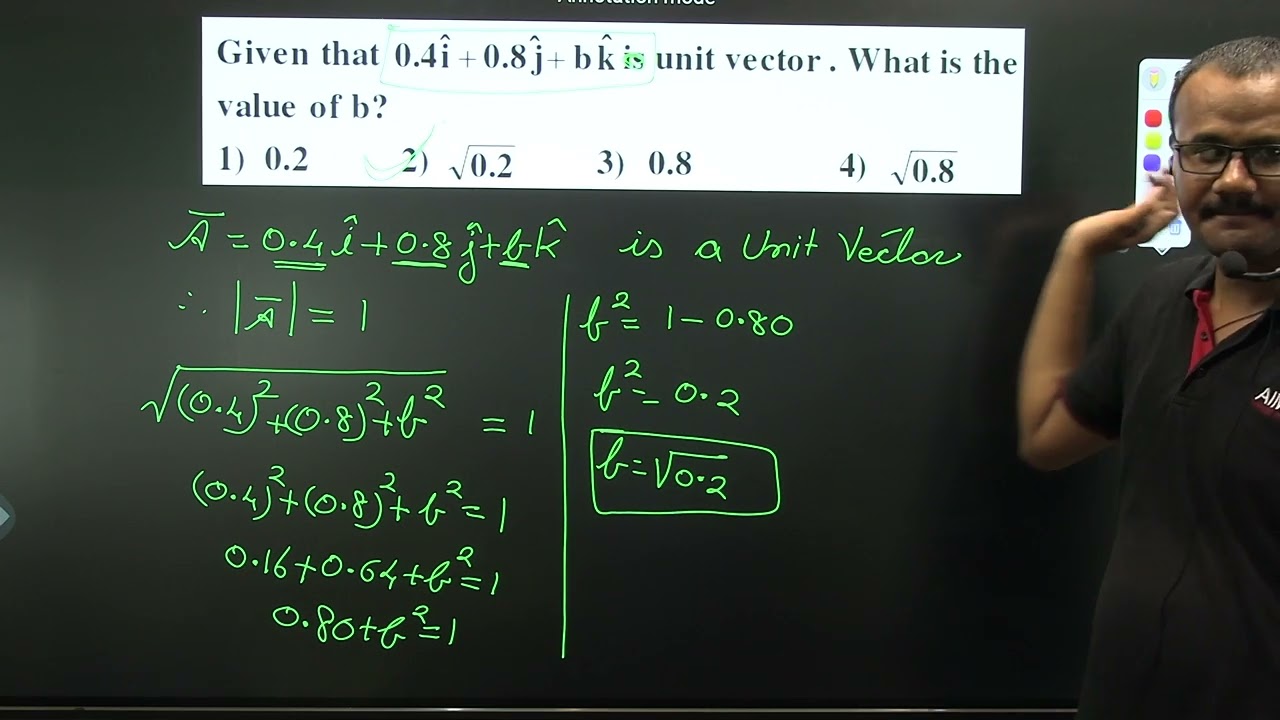 Annotation mode
Given that 0.4î + 0.8ĵ + b k̂ is unit vector . What is the
value of b?
1) 0.2 2) √0.2 3) 0.8 4) √0.8
A̅ = 0.4 î + 0.8 ĵ + b k̂ is a Unit Vector
∴ |A̅| = 1
√(0.4)²+(0.8)²+b² = 1
(0.4)²+(0.8)²+b² = 1
0.16+0.64+b² = 1
0.80+b² = 1
b² = 1 – 0.80
b² = 0.2
b = √0.2